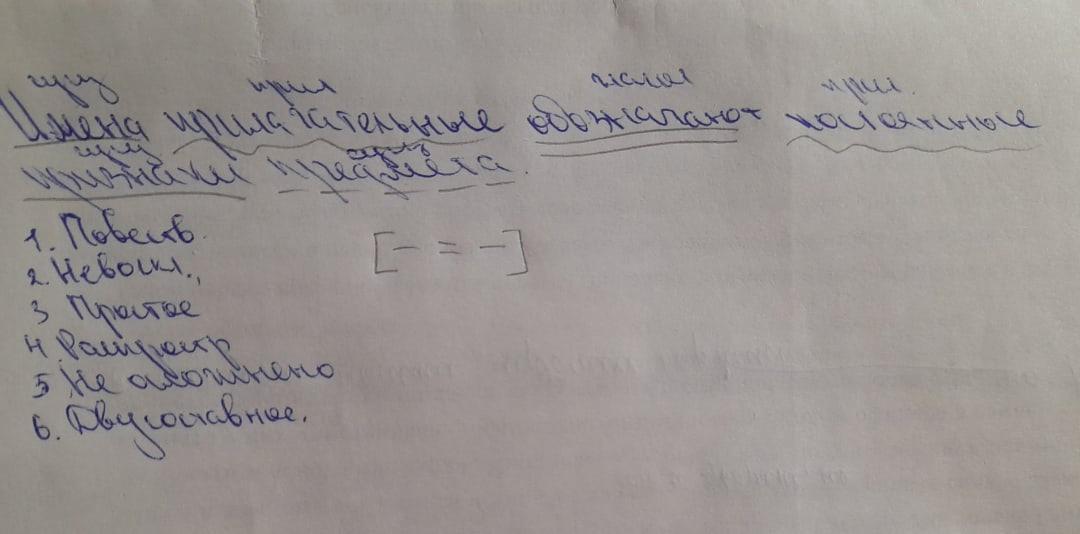 сущ прил глагол прил.
Имена прилагательные обозначают постоянные
сущ сущ
признаки предмета.
1. Повеств.
2. Невоскл.,
[— = —]
3 Простое
4 Распростр
5 Не осложнено
6. Двусоставное.